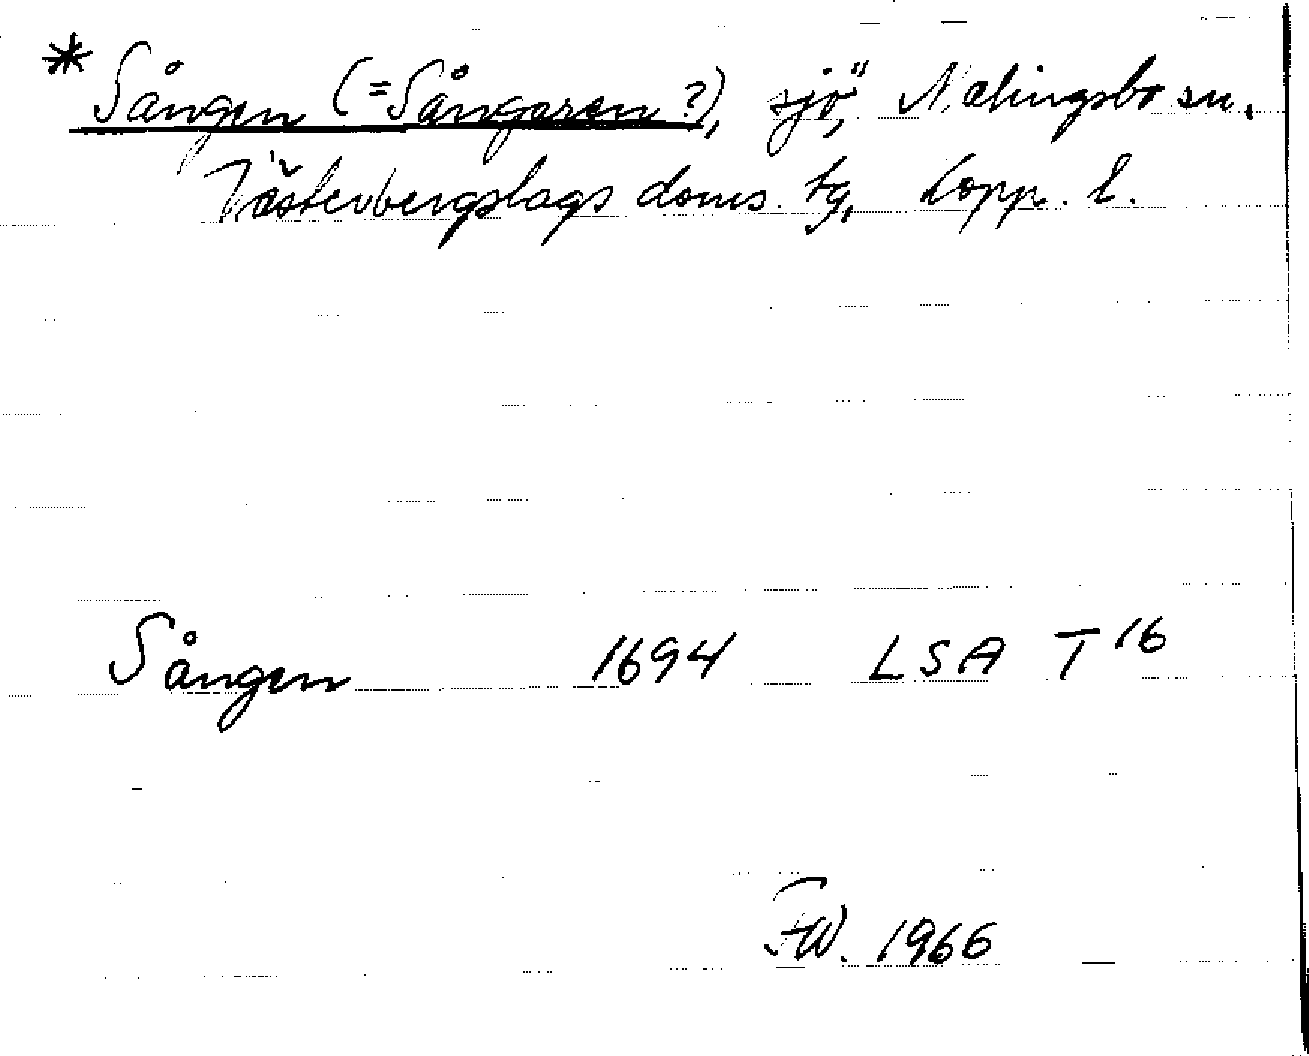 * Sången (=Sångaren?), sjö, Malingsbo sn.
Västerbergslags doms. tg, Kopp. l.
Sången 1694 LSA T 16
FW. 1966